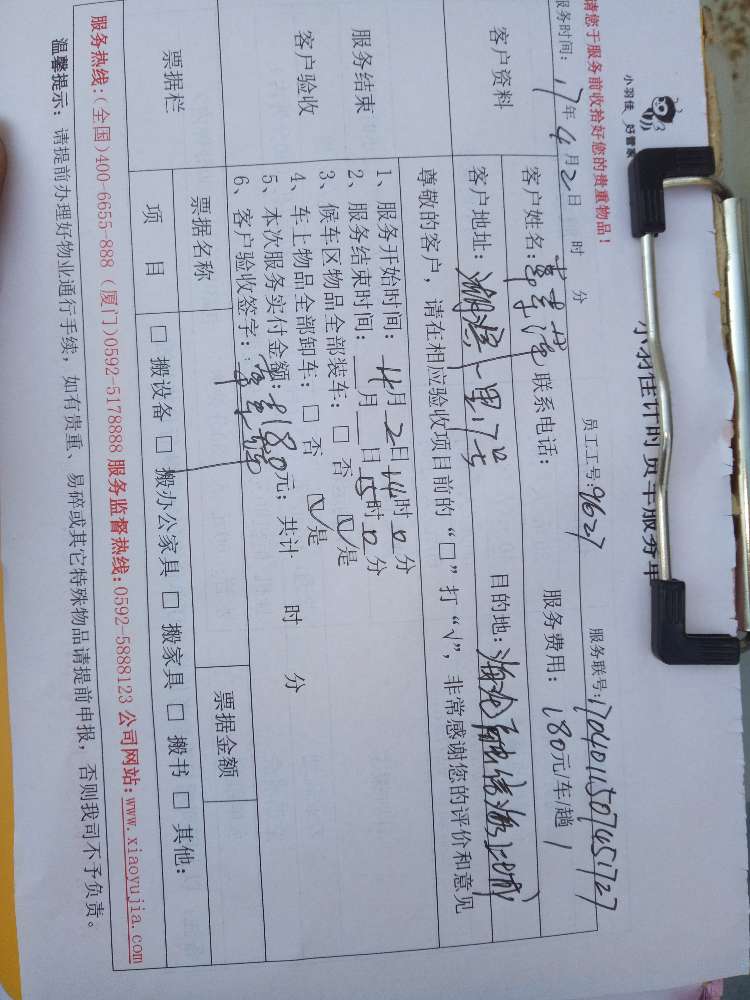 小羽佳 好管家
小羽佳计时货车服务单
请您于服务前收拾好您的贵重物品！
员工工号:9627
服务联号:
服务时间: 17年 4月 2日 时 分
客户资料
客户姓名: 联系电话:
服务费用: 180元/车/趟
客户地址: 一里17号
目的地: 海沧融信海上城
尊敬的客户，请在相应验收项目前的“□”打“√”，非常感谢您的评价和意见
服务结束
客户验收
1、服务开始时间: 4月 2日 14时 0分
2、服务结束时间: 月 日 15时 0分
3、候车区物品全部装车: □ 否 ☑ 是
4、车上物品全部卸车: □ 否 ☑ 是
5、本次服务实付金额: 180元; 共计 时 分
6、客户验收签字:
票据栏
票据名称
票据金额
项 目
□ 搬设备 □ 搬办公家具 □ 搬家具 □ 搬书 □ 其他:
服务热线:(全国)400-6655-888 (厦门)0592-5178888 服务监督热线:0592-5888123 公司网站:www.xiaoyujia.com
温馨提示: 请提前办理好物业通行手续，如有贵重、易碎或其它特殊物品请提前申报，否则我司不予负责。